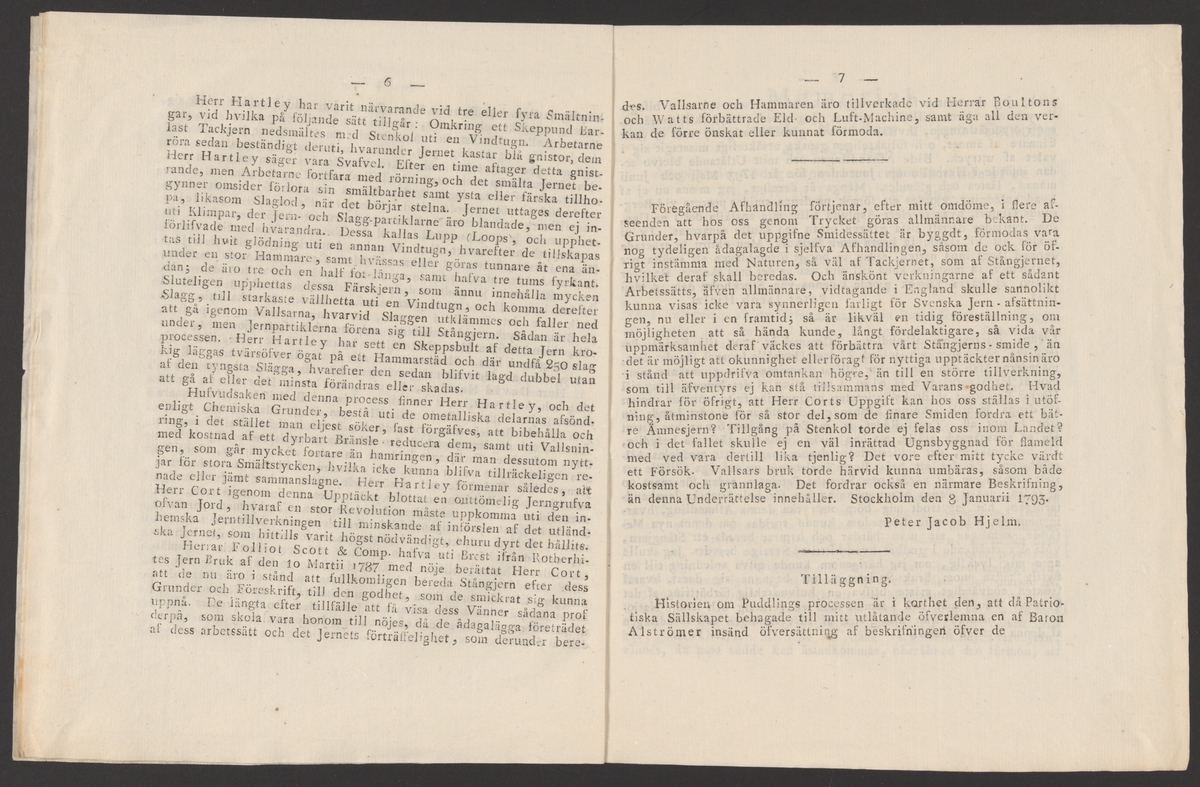 — 6 —
Herr Hartley har varit närvarande vid tre eller fyra Smältnin-
gar, vid hvilka på följande sätt tillgår: Omkring ett Skeppund Bar-
last Tackjern nedsmältes med Stenkol uti en Vindtugn. Arbetarne
röra sedan beständigt deruti, hvarunder Jernet kastar blå gnistor, dem
Herr Hartley säger vara Svafvel. Efter en time aftager detta gnist-
rande, men Arbetarne fortfara med rörning, och det smälta Jernet be-
gynner omsider förlora sin smältbarhet samt ysta eller färska tillho-
pa, likasom Slaglod, när det börjar stelna. Jernet uttages derefter
uti Klimpar, der Jern- och Slagg-partiklarne äro blandade, men ej in-
förlifvade med hvarandra. Dessa kallas Lupp (Loops), och upphet-
tas till hvit glödning uti en annan Vindtugn, hvarefter de tillskapas
under en stor Hammare, samt hvässas eller göras tunnare åt ena än-
dan; de äro tre och en half fot långa, samt hafva tre tums fyrkant.
Sluteligen upphettas dessa Färskjern, som ännu innehålla mycken
Slagg, till starkaste vällhetta uti en Vindtugn, och komma derefter
att gå igenom Vallsarna, hvarvid Slaggen utklämmes och faller ned
under, men Jernpartiklerna förena sig till Stångjern. Sådan är hela
processen. Herr Hartley har sett en Skeppsbult af detta Jern kro-
kig läggas tvärsöfver ögat på ett Hammarstäd och där undfå 250 slag
af den tyngsta Slägga, hvarefter den sedan blifvit lagd dubbel utan
att gå af eller det minsta förändras eller skadas.
Hufvudsaken med denna process finner Herr Hartley, och det
enligt Chemiska Grunder, bestå uti de ometalliska delarnas afsönd-
ring, i det stället man eljest söker, fast förgäfves, att bibehålla och
med kostnad af ett dyrbart Bränsle reducera dem, samt uti Vallsnin-
gen, som går mycket fortare än hamringen, där man dessutom nytt-
jar för stora Smältstycken, hvilka icke kunna blifva tillräckeligen re-
nade eller jämt sammanslagne. Herr Hartley förmenar således, att
Herr Cort igenom denna Upptäckt blottat en outtömelig Jerngrufva
ofvan Jord, hvaraf en stor Revolution måste uppkomma uti den in-
hemska Jerntillverkningen till minskande af införslen af det utländ-
ska Jernet, som hittills varit högst nödvändigt, ehuru dyrt det hållits.
Herrar Folliot Scott & Comp. hafva uti Bref ifrån Rotherhi-
tes Jern Bruk af den 10 Martii 1787 med nöje berättat Herr Cort,
att de nu äro i stånd att fullkomligen bereda Stångjern efter dess
Grunder och Föreskrift, till den godhet, som de smickrat sig kunna
uppnå. De längta efter tillfälle att få visa dess Vänner sådana prof
derpå, som skola vara honom till nöjes, då de ådagalägga företrädet
af dess arbetssätt och det Jernets förträffelighet, som derunder bere-
— 7 —
des. Vallsarne och Hammaren äro tillverkade vid Herrar Boultons
och Watts förbättrade Eld- och Luft-Machine, samt äga all den ver-
kan de förre önskat eller kunnat förmoda.
Föregående Afhandling förtjenar, efter mitt omdöme, i flere af-
seenden att hos oss genom Trycket göras allmännare bekant. De
Grunder, hvarpå det uppgifne Smidessättet är byggdt, förmodas vara
nog tydeligen ådagalagde i sjelfva Afhandlingen, såsom de ock för öf-
rigt instämma med Naturen, så väl af Tackjernet, som af Stångjernet,
hvilket deraf skall beredas. Och änskönt verkningarne af ett sådant
Arbetssätts, äfven allmännare, vidtagande i England skulle sannolikt
kunna visas icke vara synnerligen farligt för Svenska Jern-afsättnin-
gen, nu eller i en framtid; så är likväl en tidig föreställning, om
möjligheten att så hända kunde, långt fördelaktigare, så vida vår
uppmärksamhet deraf väckes att förbättra vårt Stångjerns-smide, än
det är möjligt att okunnighet eller förakt för nyttiga upptäckter nånsin äro
i stånd att uppdrifva omtankan högre, än till en större tillverkning,
som till äfventyrs ej kan stå tillsammans med Varans godhet. Hvad
hindrar för öfrigt, att Herr Corts Uppgift kan hos oss ställas i utöf-
ning, åtminstone för så stor del, som de finare Smiden fordra ett bätt-
re Ämnesjern? Tillgång på Stenkol torde ej felas oss inom Landet?
och i det fallet skulle ej en väl inrättad Ugnsbyggnad för flameld
med ved vara dertill lika tjenlig? Det vore efter mitt tycke värdt
ett Försök. Vallsars bruk torde härvid kunna umbäras, såsom både
kostsamt och grannlaga. Det fordrar också en närmare Beskrifning,
än denna Underrättelse innehåller. Stockholm den 8 Januarii 1793.
Peter Jacob Hjelm.
Tilläggning.
Historien om Puddlings processen är i korthet den, att då Patrio-
tiska Sällskapet behagade till mitt utlåtande öfverlemna en af Baron
Alströmer insänd öfversättning af beskrifningen öfver de